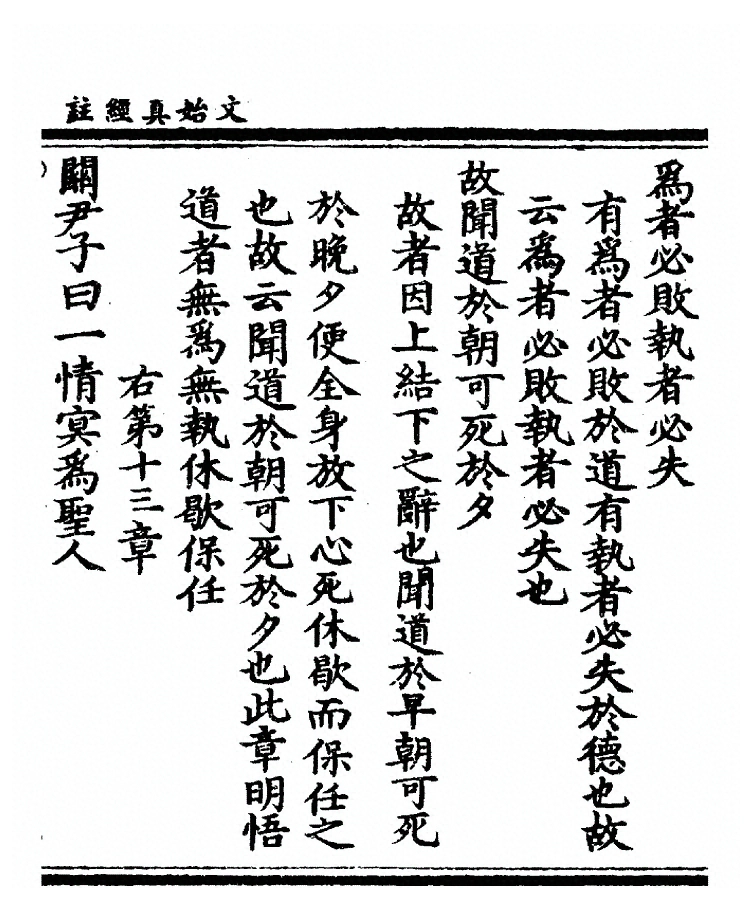 文始真經註
爲者必敗執者必失
有爲者必敗於道有執者必失於德也故
云爲者必敗執者必失也
故聞道於朝可死於夕
故者因上結下之辭也聞道於早朝可死
於晚夕便全身放下心死休歇而保任之
也故云聞道於朝可死於夕也此章明悟
道者無爲無執休歇保任
右第十三章
關尹子曰一情冥爲聖人